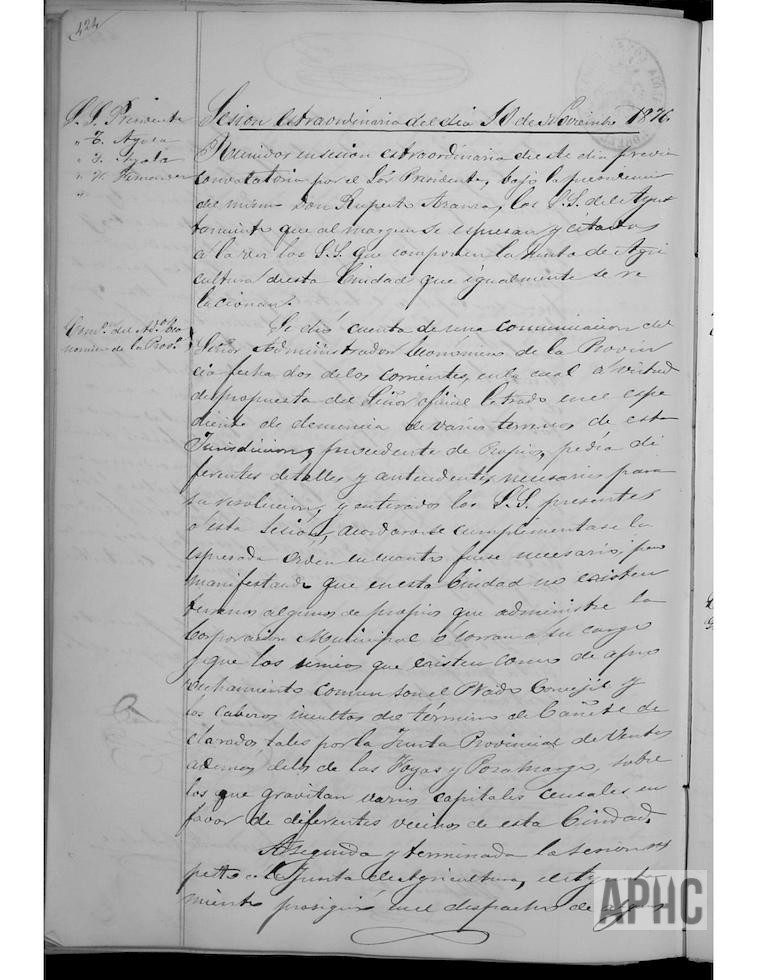 424
S.S. Presidente
" T. Ayala
" J. Ayala
" 
Sesion extraordinaria del dia 10 de Noviembre 1876
Reunidos en sesion extraordinaria de este dia previa
convocatoria por el Sor Presidente, bajo la presidencia
del mismo Don Ruperto Aranza, los S.S. del Ayun
tamiento que al margen se espresan y citados
a la vez los S.S. que componen la Junta de Agri
cultura de esta Ciudad que igualmente se re
lacionan.
Comon del Ador Eco
nomico de la Prova
Se dió cuenta de una comunicacion del
Señor Administrador Económico de la Provin
cia fecha dos de los corrientes, en la cual a virtud
de propuesta del Señor oficial Letrado en el espe
diente de denuncia de varios terrenos de esta
Jurisdiccion, procedente de Propios, pedia di
ferentes detalles y antecedentes necesarios para
su resolucion, y enterados los S.S. presentes
a esta Sesion, acordaron se cumplimentase la
espresada orden en cuanto fuese necesario; pero
manifestando que en esta Ciudad no existen
terrenos algunos de propios que administre la
Corporacion Municipal ó corran a su cargo
y que los únicos que existen como de apro
vechamiento comun son el Prado Concejil y
los caberos incultos del término de Cañete de
clarados tales por la Junta Provincial de Ventas
ademas de los de las Hoyas y Poramargo, sobre
los que gravitan varios capitales censales en
favor de diferentes vecinos de esta Ciudad.
A seguida y terminada la sesion res
petto a la Junta de Agricultura, el Ayunta
miento prosiguió en el despacho de
APHC